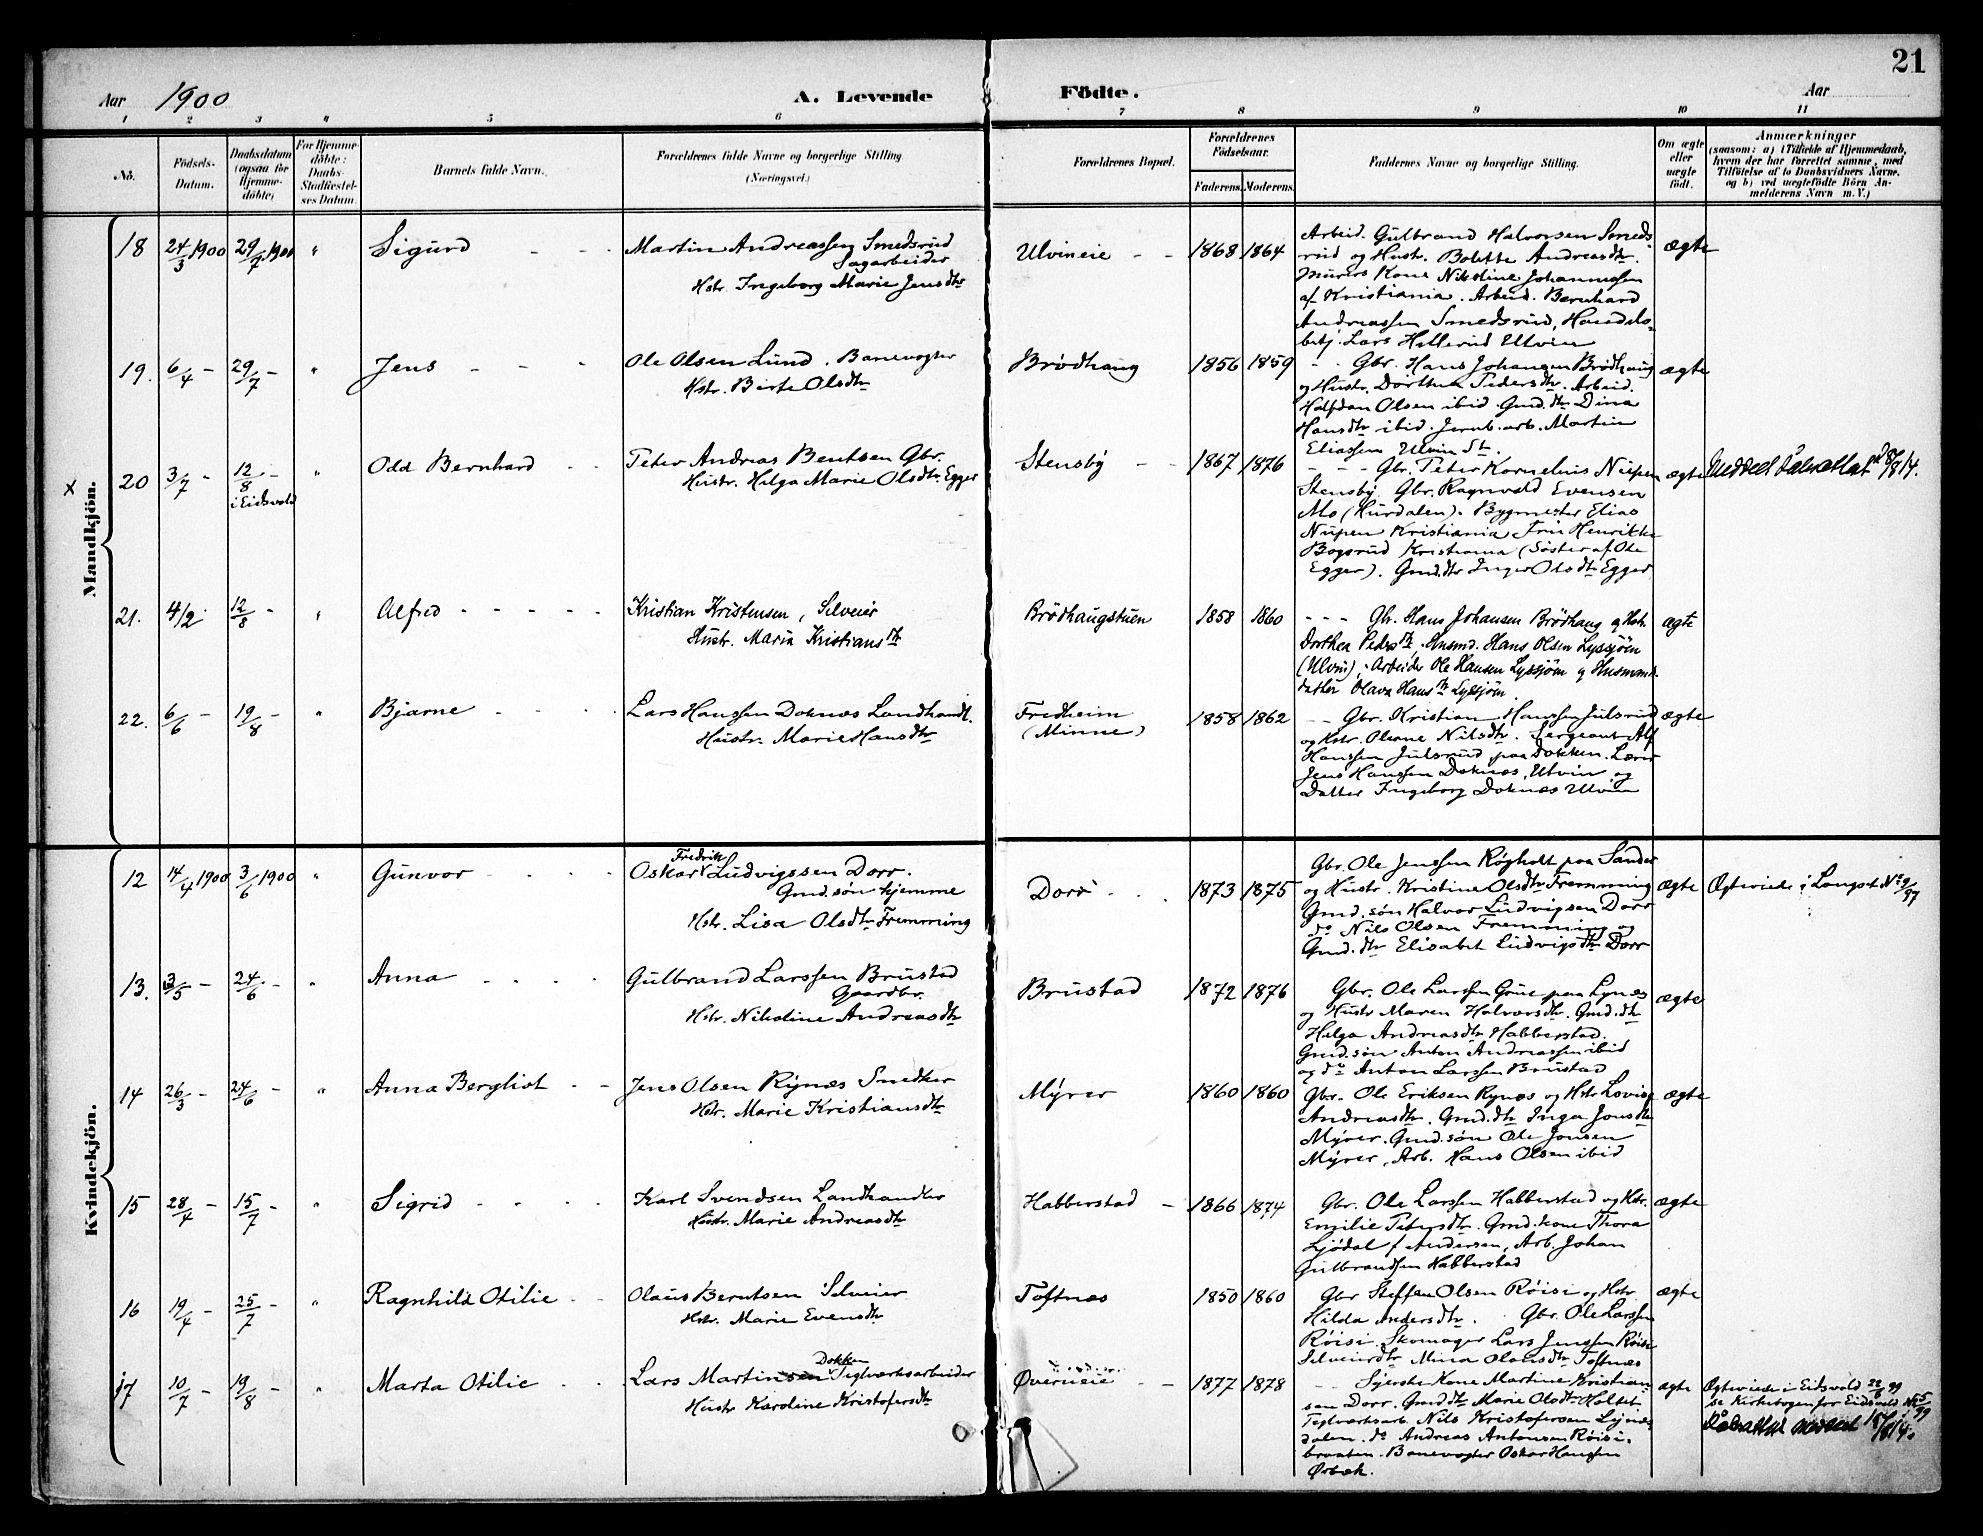 21
Aar 1900
A. Levende Födte.
Aar
1 2 3 4 5 6 7 8 9 10 11
No.
Födsels-
Datum.
Daabsdatum
(ogsaa for
Hjemme-
döbte)
For Hjemme-
döbte:
Daabs-
Stadfæstel-
ses Datum.
Barnets fulde Navn.
Forældrenes fulde Navne og borgerlige Stilling
(Næringsvei.)
Forældrenes Bopæl.
Forældrenes
Födselsaar.
Faderens. Moderens.
Faddernes Navne og borgerlige Stilling.
Om ægte
eller
uægte
födt.
Anmærkninger
(saasom: a) i Tilfælde af Hjemmedaab,
hvem der har forrettet samme, med
Tilföielse af to Daabsvidners Navne,
og b) ved uægtefödte Börn An-
melderens Navn m. V.)
Mandkjön.
18 24/3 1900 29/7 1900 " Sigurd
Martin Andreassen Smedsrud
Sagarbeider
Hstr. Ingeborg Marie Jensdtr
Ulvineie 1868 1864
Arbeid. Gulbrand Halvorsen Smeds
rud og Hustr. Bolette Andreasdtr.
Murers Kone Nikoline Johannessen
af Kristiania. Arbeid. Bernhard
Andreassen Smedsrud, Handels-
betj. Lars Hillerud Ulvin
ægte
19. 6/4 - 29/7 - " Jens
Ole Olsen Lund. Banevogter
Hstr. Birte Olsdtr
Brödhaug 1856 1859
- - Gbr. Hans Johansen Brödhaug
og Hustr. Dorthea Pedersdtr. Arbeid.
Halfdan Olsen ibid. Gmd.dtr Dina
Hansdtr ibid. Jernb.arb. Martin
Eliassen Ulvin St.
ægte
x 20 3/7 - 12/8 - " Odd Bernhard
i Eidsvold
Peter Andreas Bentsen Gbr.
Hustr. Helga Marie Olsdtr Egger
Stensby 1867 1876
- - - Gbr. Peter Kornelius Nupen
Stensby. Gbr. Ragnvald Evensen
Mo (Hurdalen). Bygmester Elias
Nupen Kristiania Fru Henrikke
Bogsrud Kristiania (Söster af Ole
Egger). Gmd.dtr Inger Olsdtr Egger
ægte
21. 4/2 12/8 - " Alfred
Kristian Kristensen, Selveier
Hustr. Maria Kristiansdtr
Brödhaugstuen 1858 1860
- - - Gbr. Hans Johansen Brödhaug og Hstr.
Dorthea Pedersdtr. Husmd. Hans Olsen Lyssjöen
(Ulvin), Arbeider Ole Hansen Lyssjöen og Husmands
datter Olava Hansdtr Lyssjöen.
ægte
22. 6/6 - 19/8 - " Bjarne
Lars Hanssen Doknæs Landhandl.
Hustr. Marie Hansdtr
Fredheim
(Minne)
1858 1862
- - Gbr. Kristian Hanssen Julsrud
og Hstr. Oleane Nilsdtr. Sergeant Alf
Hanssen Julsrud paa Dokken. Lærer
Jens Hanssen Doknæs, Ulvin, og
Datter Ingeborg Doknæs Ulvin
ægte
Kvindekjön.
12 14/4 1900 3/6 1900 " Gunvor
Fredrik
Oskar Ludvigssen Dorr.
Gmd. søn hjemme
Hstr. Lisa Olsdtr Fremming
Dorr 1873 1875
Gbr. Ole Jenssen Røgholt paa Sander
og Hustr. Kristine Olsdtr Fremming
Gmd. søn Halvor Ludvigsen Dorr
do Nils Olsen Fremming og
Gmd.dtr Elisabet Ludvigsdtr Dorr
ægte
Ægteviede i Langset No 9/97
13. 3/5 - 24/6 - " Anna
Gulbrand Larssen Brustad
Gaardbr.
Hstr. Nikoline Andreasdtr
Brustad 1872 1876
Gbr. Ole Larssen Grue paa Lynæs
og Hustr Maren Halvorsdtr. Gmd.dtr
Helga Andreasdtr Habberstad.
Gmd. søn Anton Andreassen ibid
og do Anton Larssen Brustad
ægte
14 26/3 - 24/6 - " Anna Bergliot
Jens Olsen Rynæs Snedker
Hstr. Marie Kristiansdtr
Myrer 1860 1860
Gbr. Ole Eriksen Rynæs og Hstr Lovise
Andreasdtr. Gmd.dtr Inga Jonsdtr
Myrer. Gmd. søn Ole Jonsen
Myrer, Arb. Hans Olsen ibid
ægte
15 28/4 - 15/7 - " Sigrid
Karl Svendsen Landhandler
Hustr. Marie Andreasdtr
Habberstad 1866 1874
Gbr. Ole Larssen Habberstad og Hstr.
Emilie Petersdtr. Gmd. kone Thora
Ljödal f. Andersen, Arb. Johan
Gulbrandsen Habberstad
ægte
16 19/4 - 25/7 - " Ragnhild Otilie
Olaus Berntsen Selveier
Hstr. Marie Evensdtr
Toftnæs 1850 1860
Gbr Steffen Olsen Røisi og Hstr.
Hilda Andersdtr. Gbr. Ole Larssen
Røisi. Skomager Lars Jenssen Røisi
Selveierdtr Mina Olausdtr Toftnæs
ægte
17 10/7 - 19/8 - " Marta Otilie
Dokken
Lars Martinsen Teglværksarbeider
Hustr Karoline Kristofersdtr
Øverneie 1877 1878
- - Gjerske Kone Martine Kristian-
sen Dorr. Gmddtr Marie Olsdtr Holtet
Teglværksarb. Nils Kristofersen Lynæs
dalen. do Andreas Antonsen Røisi-
braaten. Banevogter Oskar Hanssen
Ørbæk.
ægte
Ægteviede i Eidsvold 22/6 99
se Kirkebogen for Eidsvold No 5/99
Dåbsattest meddelt